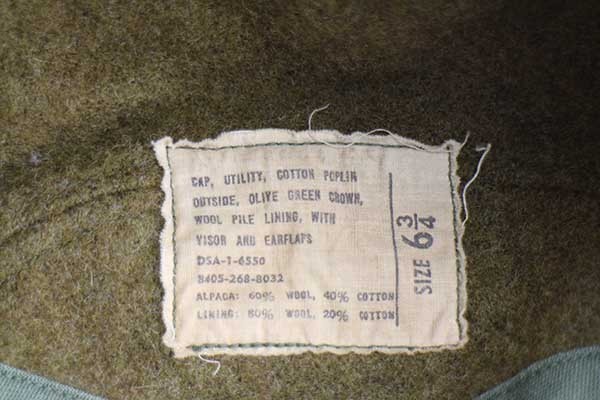 CAP, UTILITY, COTTON POPLIN
OUTSIDE, OLIVE GREEN CROWN,
WOOL PILE LINING, WITH
VISOR AND EARFLAPS
DSA-1-6550
8405-268-8032
ALPACA: 60% WOOL, 40% COTTON
LINING: 80% WOOL, 20% COTTON
SIZE 6 3/4